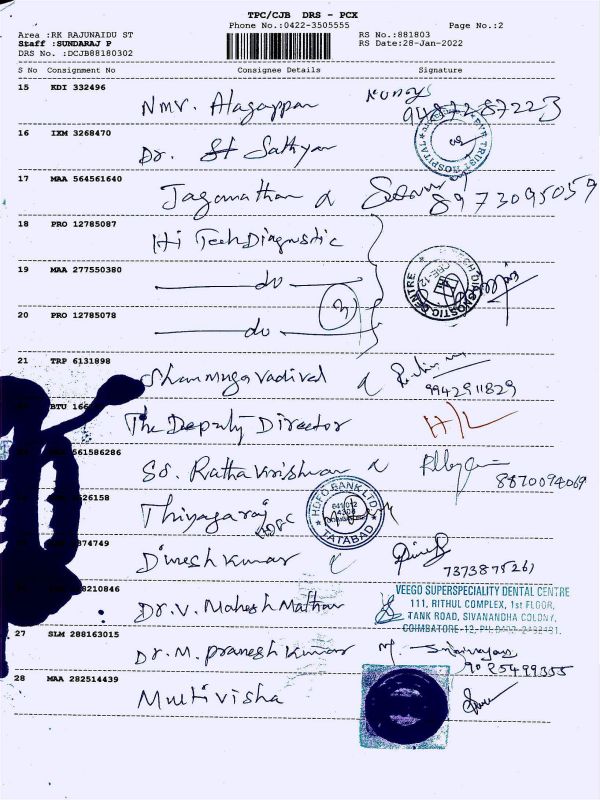 TPC/CJB DRS - PCX
Phone No.:0422-3505555 Page No.:2
Area :RK RAJUNAIDU ST RS No.:881803
Staff :SUNDARAJ P RS Date:28-Jan-2022
DRS No. :DCJB88180302
S No Consignment No Consignee Details Signature
15 KDI 332496
Nmv. Alagappan 9487287223
16 IXM 3268470
Dr. St Sathyan
TRUST HOSPITAL
17 MAA 564561640
Jaganathan 8973095059
18 PRO 12785087
Hi Tech Diagnostic
19 MAA 277550380
do
DIAGNOSTIC CENTRE
3
20 PRO 12785078
do
21 TRP 6131898
Shanmugavadivel
9942911829
BTU 166
The Deputy Director H/L
561586286
So. Rathakrishnan
8870094069
626158
Thiyagaraj HDFC
HDFC BANK LTD
TATABAD
874749
Dinesh Kumar
7373875261
8210846
Dr. V. Mahesh Mathan
VEEGO SUPERSPECIALITY DENTAL CENTRE
111, RITHUL COMPLEX, 1st FLOOR,
TANK ROAD, SIVANANDHA COLONY,
COIMBATORE-12,
27 SLM 288163015
Dr. M. Pranesh Kumar
9025499355
28 MAA 282514439
Multivisha